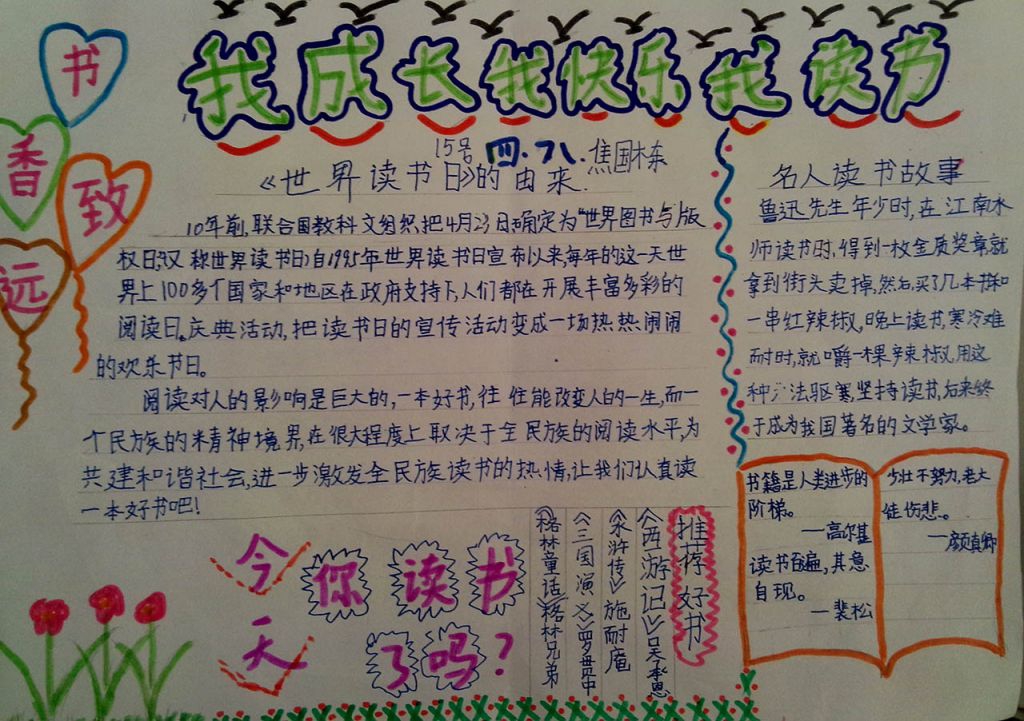 书
香
致
远
我成长我快乐我读书
15号 四.7八.焦国栋
《世界读书日》的由来.
10年前,联合国教科文组织把4月23日确定为"世界图书与版
权日,汉称世界读书日》自1995年世界读书日宣布以来,每年的这一天世
界上100多个国家和地区在政府支持下,人们都在开展丰富多彩的
阅读日。庆典活动,把读书日的宣传活动变成一场热热闹闹
的欢乐节日。
阅读对人的影响是巨大的,一本好书,往往能改变人的一生,而一
个民族的精神境界,在很大程度上取决于全民族的阅读水平,为
共建和谐社会,进一步激发全民族读书的热情,让我们认真读
一本好书吧!
名人读书故事
鲁迅先生年少时,在江南水
师读书时,得到一枚金质奖章,就
拿到街头卖掉,然后,买了几本书和
一串红辣椒,晚上读书,寒冷难
耐时,就嚼一棵辣椒,用这
种方法驱寒,坚持读书,后来终
于成为我国著名的文学家。
今天
你读书
了吗?
推荐好书
《西游记》吴承恩
《水浒传》施耐庵
《三国演义》罗贯中
《格林童话》格林兄弟
书籍是人类进步的
阶梯。
—高尔基
读书百遍,其意
自现。
—裴松
少壮不努力,老大
徒伤悲。
—颜真卿